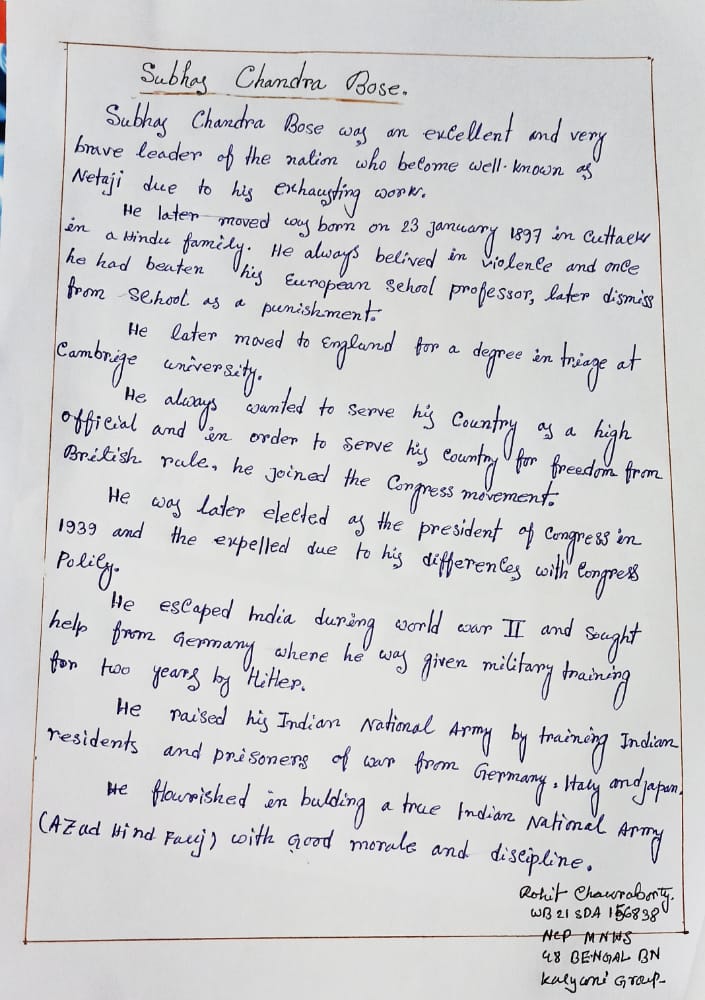 Subhas Chandra Bose.
Subhas Chandra Bose was an excellent and very
brave leader of the nation who become well-known as
Netaji due to his exhausting work.
He later moved was born on 23 january 1897 in Cuttack
in a Hindu family. He always belived in violence and once
he had beaten his European school professor, later dismiss
from school as a punishment.
He later moved to England for a degree in triage at
Cambrige university.
He always wanted to serve his Country as a high
official and in order to serve his country for freedom from
British rule, he joined the Congress movement.
He was later elected as the president of Congress in
1939 and the expelled due to his differences with Congress
Policy.
He escaped India during world war II and sought
help from Germany where he was given military training
for two years by Hitler.
He raised his Indian National Army by training Indian
residents and prisoners of war from Germany, Italy and japan.
He flourished in bulding a true Indian National Army
(AZad Hind Fauj) with good morale and discipline.
Rohit Chawraborty.
WB 21 SDA 156838
NCP MNWS
48 BENGAL BN
Kalyani Group-